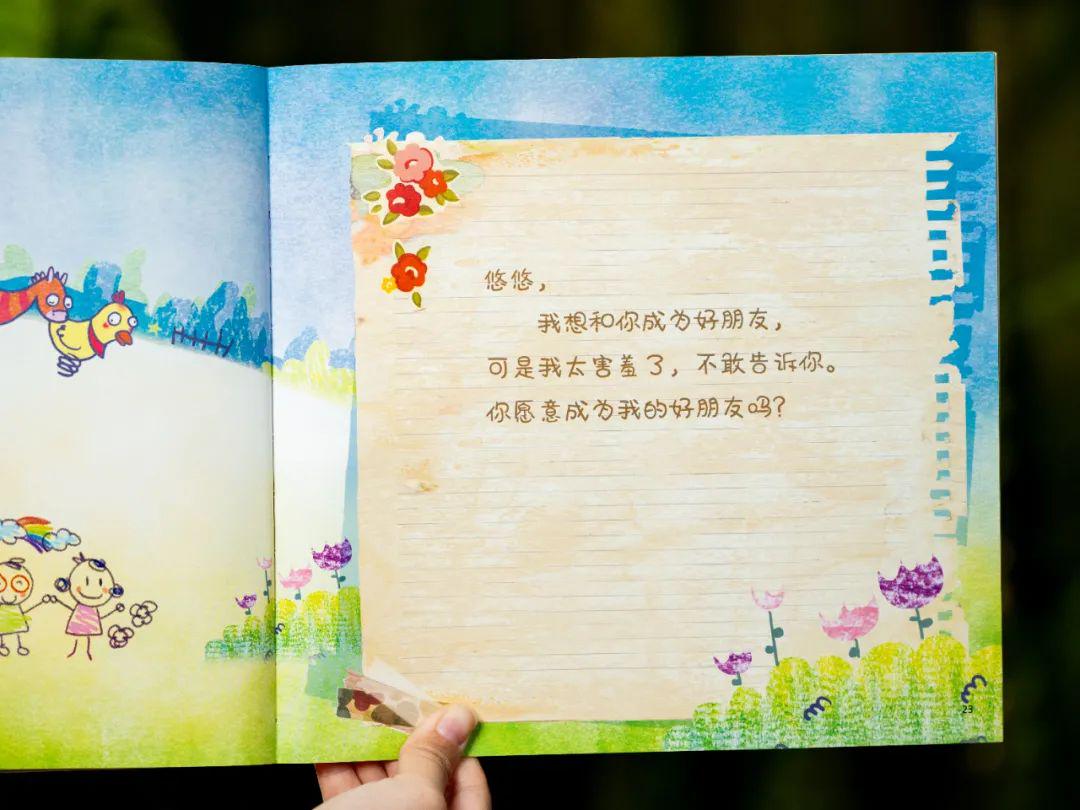 悠悠，
我想和你成为好朋友，
可是我太害羞了，不敢告诉你。
你愿意成为我的好朋友吗？
23